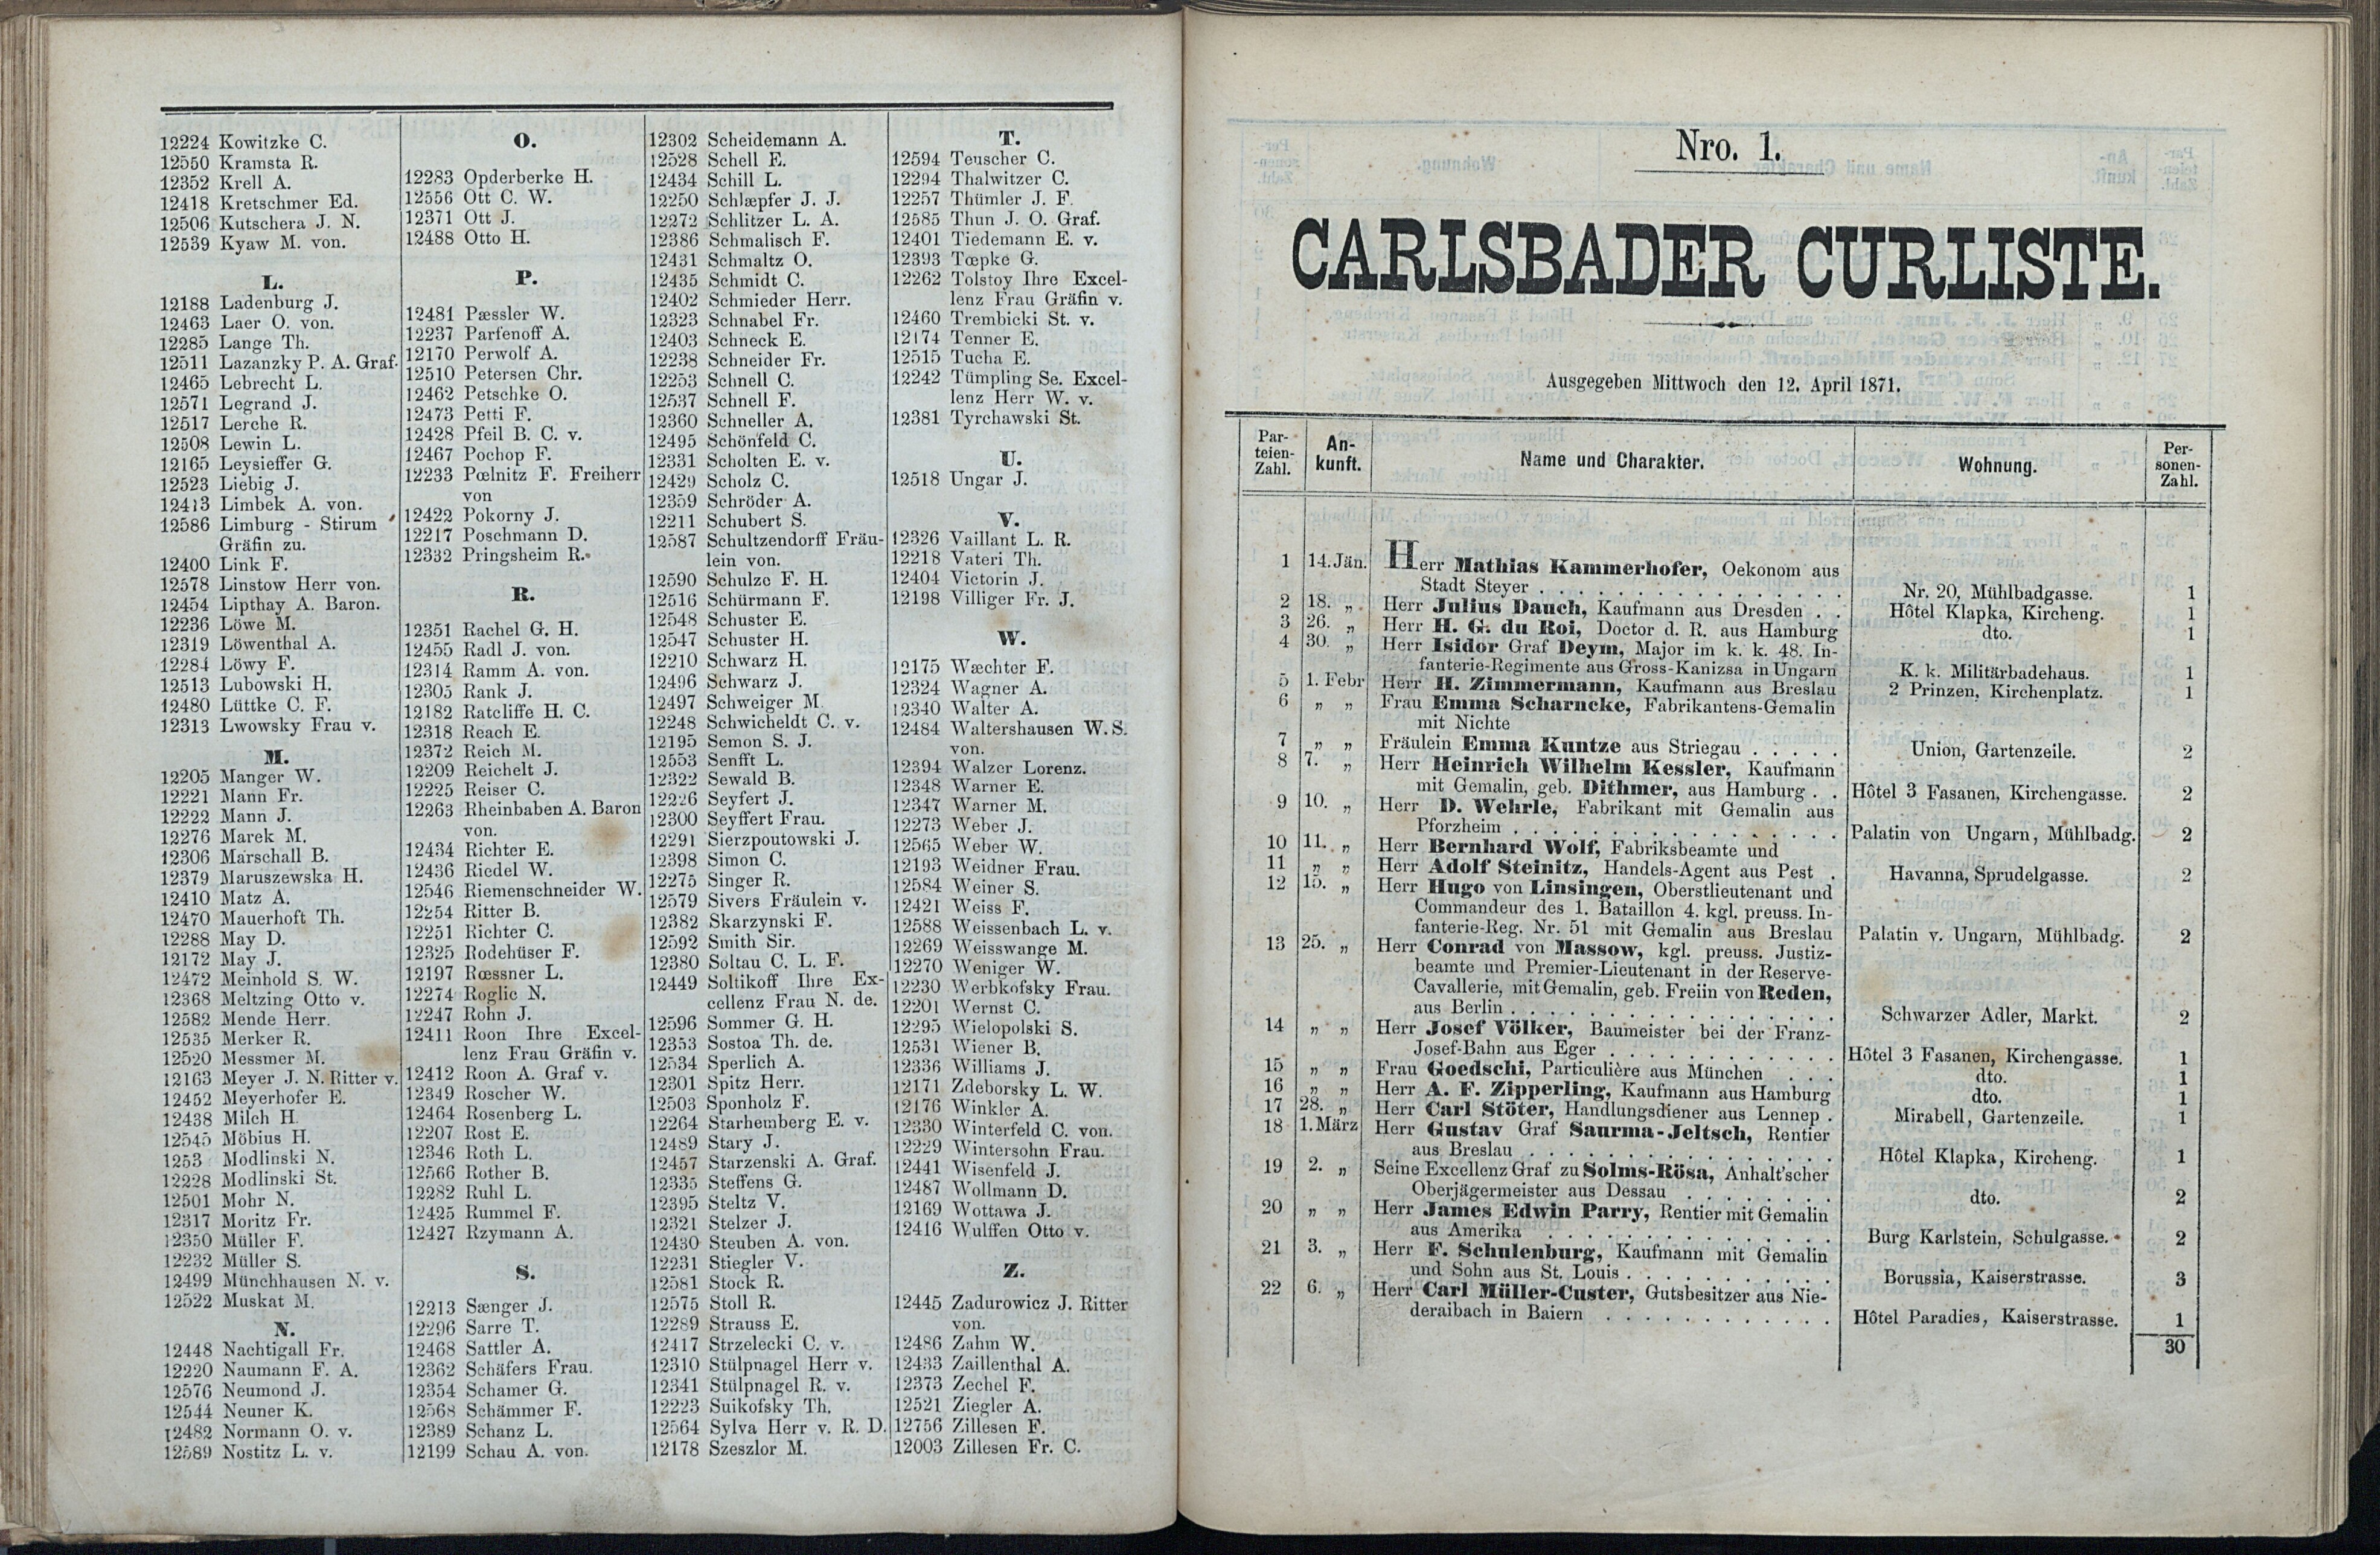 12224 Kowitzke C.
12550 Kramsta R.
12352 Krell A.
12418 Kretschmer Ed.
12506 Kutschera J. N.
12539 Kyaw M. von.
L.
12188 Ladenburg J.
12463 Laer O. von.
12285 Lange Th.
12511 Lazanzky P. A. Graf.
12465 Lebrecht L.
12571 Legrand J.
12517 Lerche R.
12508 Lewin L.
12165 Leysieffer G.
12523 Liebig J.
12413 Limbek A. von.
12586 Limburg - Stirum
Gräfin zu.
12400 Link F.
12578 Linstow Herr von.
12454 Lipthay A. Baron.
12236 Löwe M.
12319 Löwenthal A.
12284 Löwy F.
12513 Lubowski H.
12480 Lüttke C. F.
12313 Lwowsky Frau v.
M.
12205 Manger W.
12221 Mann Fr.
12222 Mann J.
12276 Marek M.
12306 Marschall B.
12379 Maruszewska H.
12410 Matz A.
12470 Mauerhoft Th.
12288 May D.
12172 May J.
12472 Meinhold S. W.
12368 Meltzing Otto v.
12582 Mende Herr.
12535 Merker R.
12520 Messmer M.
12163 Meyer J. N. Ritter v.
12452 Meyerhofer E.
12438 Milch H.
12545 Möbius H.
1253 Modlinski N.
12228 Modlinski St.
12501 Mohr N.
12317 Moritz Fr.
12350 Müller F.
12232 Müller S.
12499 Münchhausen N. v.
12522 Muskat M.
N.
12448 Nachtigall Fr.
12220 Naumann F. A.
12576 Neumond J.
12544 Neuner K.
12482 Normann O. v.
12589 Nostitz L. v.
O.
12283 Opderberke H.
12556 Ott C. W.
12371 Ott J.
12488 Otto H.
P.
12481 Pæssler W.
12237 Parfenoff A.
12170 Perwolf A.
12510 Petersen Chr.
12462 Petschke O.
12473 Petti F.
12428 Pfeil B. C. v.
12467 Pochop F.
12233 Pœlnitz F. Freiherr
von
12422 Pokorny J.
12217 Poschmann D.
12332 Pringsheim R.
R.
12351 Rachel G. H.
12455 Radl J. von.
12314 Ramm A. von.
12305 Rank J.
12182 Ratcliffe H. C.
12318 Reach E.
12372 Reich M.
12209 Reichelt J.
12225 Reiser C.
12263 Rheinbaben A. Baron
von.
12434 Richter E.
12436 Riedel W.
12546 Riemenschneider W.
12254 Ritter B.
12251 Richter C.
12325 Rodehüser F.
12197 Rœssner L.
12274 Roglic N.
12247 Rohn J.
12411 Roon Ihre Excel-
lenz Frau Gräfin v.
12412 Roon A. Graf v.
12349 Roscher W.
12464 Rosenberg L.
12207 Rost E.
12346 Roth L.
12566 Rother B.
12282 Ruhl L.
12425 Rummel F.
12427 Rzymann A.
S.
12213 Sænger J.
12296 Sarre T.
12468 Sattler A.
12362 Schäfers Frau.
12354 Schamer G.
12568 Schämmer F.
12389 Schanz L.
12199 Schau A. von.
12302 Scheidemann A.
12528 Schell E.
12434 Schill L.
12250 Schlæpfer J. J.
12272 Schlitzer L. A.
12386 Schmalisch F.
12431 Schmaltz O.
12435 Schmidt C.
12402 Schmieder Herr.
12323 Schnabel Fr.
12403 Schneck E.
12238 Schneider Fr.
12253 Schnell C.
12537 Schnell F.
12360 Schneller A.
12495 Schönfeld C.
12331 Scholten E. v.
12429 Scholz C.
12359 Schröder A.
12211 Schubert S.
12587 Schultzendorff Fräu-
lein von.
12590 Schulze F. H.
12516 Schürmann F.
12548 Schuster E.
12547 Schuster H.
12210 Schwarz H.
12496 Schwarz J.
12497 Schweiger M.
12248 Schwicheldt C. v.
12195 Semon S. J.
12553 Senfft L.
12322 Sewald B.
12226 Seyfert J.
12300 Seyffert Frau.
12291 Sierzpoutowski J.
12398 Simon C.
12275 Singer R.
12579 Sivers Fräulein v.
12382 Skarzynski F.
12592 Smith Sir.
12380 Soltau C. L. F.
12449 Soltikoff Ihre Ex-
cellenz Frau N. de.
12596 Sommer G. H.
12353 Sostoa Th. de.
12534 Sperlich A.
12301 Spitz Herr.
12503 Sponholz F.
12264 Starhemberg E. v.
12489 Stary J.
12457 Starzenski A. Graf.
12335 Steffens G.
12395 Steltz V.
12321 Stelzer J.
12430 Steuben A. von.
12231 Stiegler V.
12581 Stock R.
12575 Stoll R.
12289 Strauss E.
12417 Strzelecki C. v.
12310 Stülpnagel Herr v.
12341 Stülpnagel R. v.
12223 Suikofsky Th.
12564 Sylva Herr v. R. D.
12178 Szeszlor M.
T.
12594 Teuscher C.
12294 Thalwitzer C.
12257 Thümler J. F.
12585 Thun J. O. Graf.
12401 Tiedemann E. v.
12393 Tœpke G.
12262 Tolstoy Ihre Excel-
lenz Frau Gräfin v.
12460 Trembicki St. v.
12174 Tenner E.
12515 Tucha E.
12242 Tümpling Se. Excel-
lenz Herr W. v.
12381 Tyrchawski St.
U.
12518 Ungar J.
V.
12326 Vaillant L. R.
12218 Vateri Th.
12404 Victorin J.
12198 Villiger Fr. J.
W.
12175 Wæchter F.
12324 Wagner A.
12340 Walter A.
12484 Waltershausen W. S.
von.
12394 Walzer Lorenz.
12348 Warner E.
12347 Warner M.
12273 Weber J.
12565 Weber W.
12193 Weidner Frau.
12584 Weiner S.
12421 Weiss F.
12588 Weissenbach L. v.
12269 Weisswange M.
12270 Weniger W.
12230 Werbkofsky Frau.
12201 Wernst C.
12295 Wielopolski S.
12531 Wiener B.
12336 Williams J.
12171 Zdeborsky L. W.
12176 Winkler A.
12330 Winterfeld C. von.
12229 Wintersohn Frau.
12441 Wisenfeld J.
12487 Wollmann D.
12169 Wottawa J.
12416 Wulffen Otto v.
Z.
12445 Zadurowicz J. Ritter
von.
12486 Zahm W.
12433 Zaillenthal A.
12373 Zechel F.
12521 Ziegler A.
12756 Zillesen F.
12003 Zillesen Fr. C.
Nro. 1.
CARLSBADER CURLISTE.
Ausgegeben Mittwoch den 12. April 1871.
Par-teien-Zahl. An-kunft. Name und Charakter. Wohnung. Per-sonen-Zahl.
1 14. Jän. Herr Mathias Kammerhofer, Oekonom aus
Stadt Steyer . . . Nr. 20, Mühlbadgasse. 1
2 18. „ Herr Julius Dauch, Kaufmann aus Dresden . . Hôtel Klapka, Kircheng. 1
3 26. „ Herr H. G. du Roi, Doctor d. R. aus Hamburg dto. 1
4 30. „ Herr Isidor Graf Deym, Major im k. k. 48. In-
fanterie-Regimente aus Gross-Kanizsa in Ungarn K. k. Militärbadehaus. 1
5 1. Febr Herr H. Zimmermann, Kaufmann aus Breslau 2 Prinzen, Kirchenplatz. 1
6 „ „ Frau Emma Scharncke, Fabrikantens-Gemalin
mit Nichte
7 „ „ Fräulein Emma Kuntze aus Striegau . . . . . Union, Gartenzeile. 2
8 7. „ Herr Heinrich Wilhelm Kessler, Kaufmann
mit Gemalin, geb. Dithmer, aus Hamburg . . Hôtel 3 Fasanen, Kirchengasse. 2
9 10. „ Herr D. Wehrle, Fabrikant mit Gemalin aus
Pforzheim . . . Palatin von Ungarn, Mühlbadg. 2
10 11. „ Herr Bernhard Wolf, Fabriksbeamte und
11 „ „ Herr Adolf Steinitz, Handels-Agent aus Pest . Havanna, Sprudelgasse. 2
12 15. „ Herr Hugo von Linsingen, Oberstlieutenant und
Commandeur des 1. Bataillon 4. kgl. preuss. In-
fanterie-Reg. Nr. 51 mit Gemalin aus Breslau Palatin v. Ungarn, Mühlbadg. 2
13 25. „ Herr Conrad von Massow, kgl. preuss. Justiz-
beamte und Premier-Lieutenant in der Reserve-
Cavallerie, mit Gemalin, geb. Freiin von Reden,
aus Berlin . . . Schwarzer Adler, Markt. 2
14 „ „ Herr Josef Völker, Baumeister bei der Franz-
Josef-Bahn aus Eger . . . Hôtel 3 Fasanen, Kirchengasse. 1
15 „ „ Frau Goedschi, Particulière aus München . . . dto. 1
16 „ „ Herr A. F. Zipperling, Kaufmann aus Hamburg dto. 1
17 28. „ Herr Carl Stöter, Handlungsdiener aus Lennep . Mirabell, Gartenzeile. 1
18 1. März Herr Gustav Graf Saurma-Jeltsch, Rentier
aus Breslau . . . Hôtel Klapka, Kircheng. 1
19 2. „ Seine Excellenz Graf zu Solms-Rösa, Anhalt'scher
Oberjägermeister aus Dessau . . . dto. 2
20 „ „ Herr James Edwin Parry, Rentier mit Gemalin
aus Amerika . . . Burg Karlstein, Schulgasse. 2
21 3. „ Herr F. Schulenburg, Kaufmann mit Gemalin
und Sohn aus St. Louis . . . Borussia, Kaiserstrasse. 3
22 6. „ Herr Carl Müller-Custer, Gutsbesitzer aus Nie-
deraibach in Baiern . . . Hôtel Paradies, Kaiserstrasse. 1
30